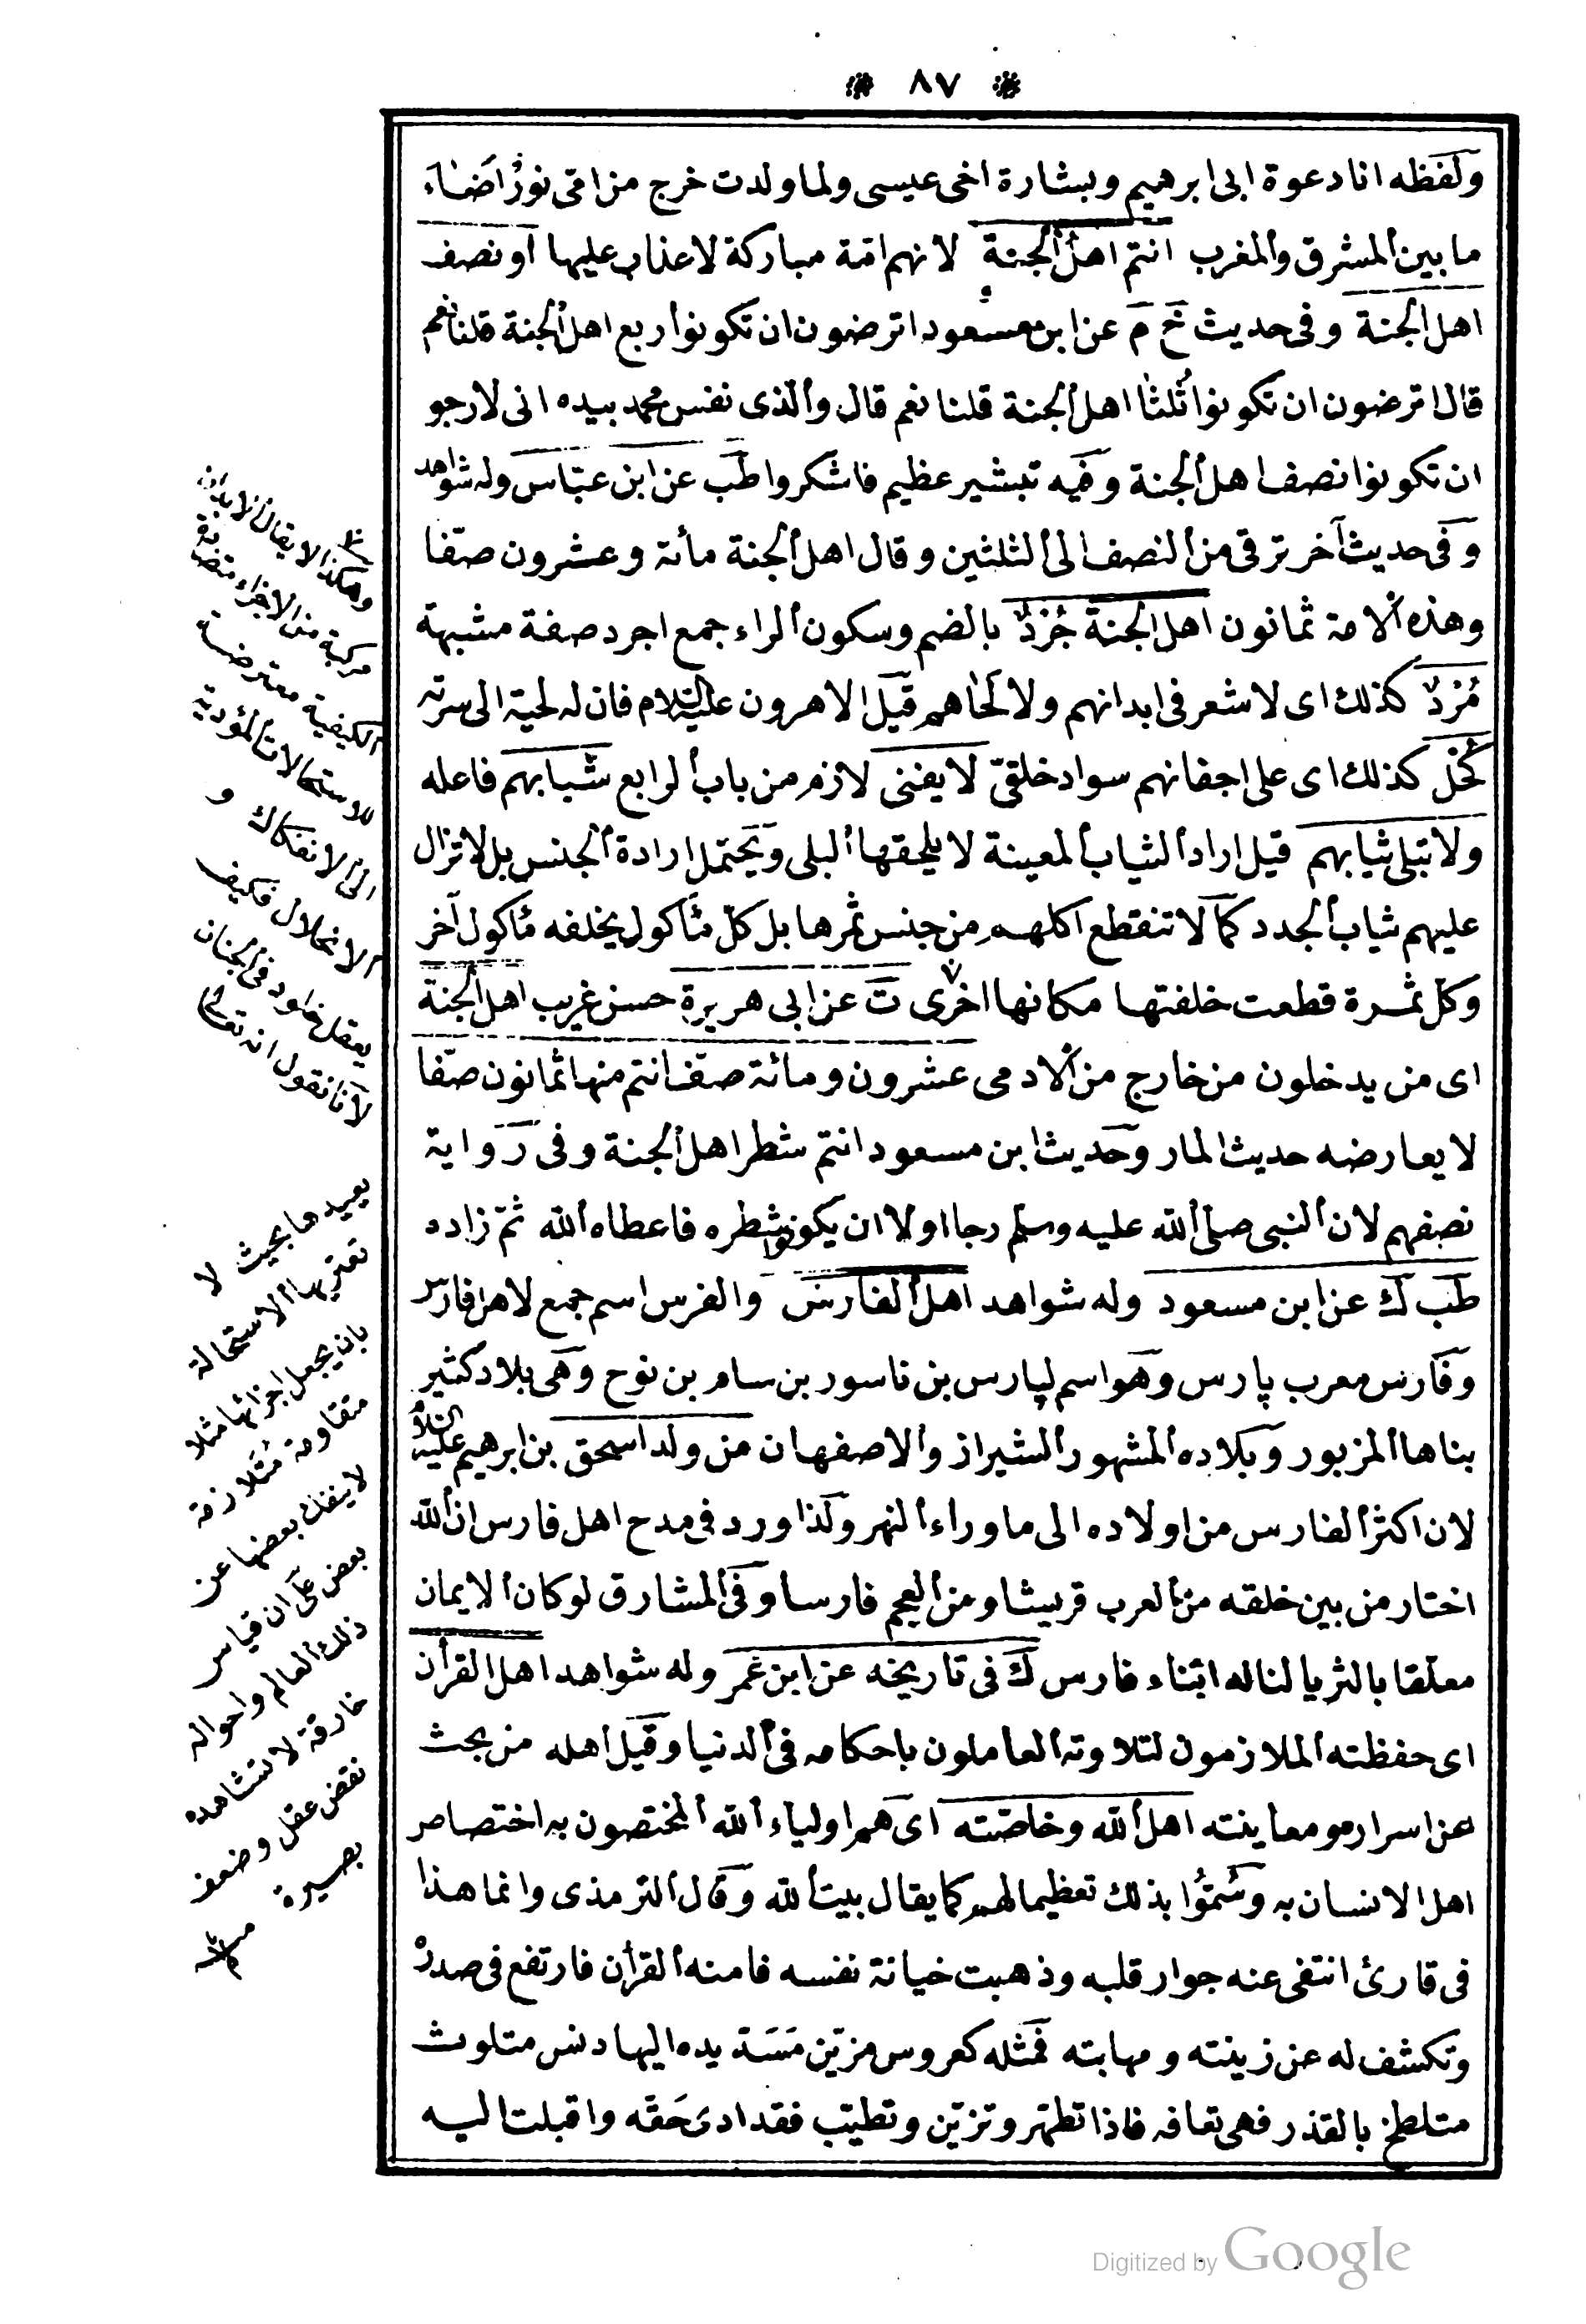 ٨٧
ولفظه انا دعوة ابى ابرهيم وبشارة اخى عيسى ولما ولدت خرج من امى نور اضاء
ما بين المشرق والمغرب انتم اهل الجنة لانهم امة مباركة لا عذاب عليها او نصف
اهل الجنة وفى حديث خ م عن ابن مسعود اترضون ان تكونوا ربع اهل الجنة قلنا نعم
قال اترضون ان تكونوا ثلثا اهل الجنة قلنا نعم قال والذى نفس محمد بيده انى لارجو
ان تكونوا نصف اهل الجنة وفيه تبشير عظيم فاشكروا طب عن ابن عباس وله شواهد
وفى حديث آخر ترقى من النصف الى الثلثين وقال اهل الجنة مأئة وعشرون صفا
وهذه الامة ثمانون اهل الجنة جُرْدٌ بالضم وسكون الراء جمع اجرد صفة مشبهة
مُرْدٌ كذلك اى لا شعر فى ابدانهم ولا لحاهم قيل الا هرون عليه السلام فان له لحية الى سرته
كُحْل كذلك اى على اجفانهم سواد خلقىّ لا يفنى لازم من باب الرابع شبابهم فاعله
ولا تبلى ثيابهم قيل اراد الثياب المعينة لا يلحقها البلى ويحتمل ارادة الجنس بل لا تزال
عليهم ثياب الجدد كما لا تنقطع اكلهم من جنس ثمرها بل كل مأكول يخلفه مأكول آخر
وكل ثمرة قطعت خلفتها مكانها اخرى ت عن ابى هريرة حسن غريب اهل الجنة
اى من يدخلون من خارج من الادمى عشرون ومائة صف انتم منها ثمانون صفا
لا يعارضه حديث المار وحديث ابن مسعود انتم شطر اهل الجنة وفى رواية
نصفهم لان النبى صلى الله عليه وسلم رجا اولا ان يكونوا شطره فاعطاه الله ثم زاده
طب ك عن ابن مسعود وله شواهد اهل الفارس والفرس اسم جمع لاهل فارس
وفارس معرب پارس وهو اسم لپارس بن ناسور بن سام بن نوح وهى بلاد كثير
بناها المزبور وبلاده المشهور الشيراز والاصفهان من ولد اسحق بن ابرهيم عليه السلام
لان اكثر الفارس من اولاده الى ما وراء النهر وكذا ورد فى مدح اهل فارس ان الله
اختار من بين خلقه من العرب قريشا ومن العجم فارسا وفى المشارق لو كان الايمان
معلقا بالثريا لناله ابناء فارس ك فى تاريخه عن ابن عمر وله شواهد اهل القرأن
اى حفظته الملازمون لتلاوته العاملون باحكامه فى الدنيا وقيل اهله من بحث
عن اسراره ومعاينته اهل الله وخاصته اى هم اولياء الله المختصون به اختصاص
اهل الانسان به وسُمّوا بذلك تعظيما لهم كما يقال بيت الله وقال الترمذى وانما هذا
فى قارئ انتفى عنه جوار قلبه وذهبت خيانة نفسه فامنه القرأن فارتفع فى صدره
وتكشف له عن زينته ومهابته فمثله كعروس مزيّن مَسَدّ يده اليها دنس متلوث
متلطخ بالقذر فهى تعافه فاذا تطهر وتزيّن وتطيّب فقد ادى حقه واقبلت اليه
وهكذا لا يقال الابدان
مركبة من الاجزاء متضادة
الكيفية معترضة
للاستحالات المؤدية
الى الانفكاك و
الانحلال فكيف
يعقل خلود فى الجنان
لانا نقول انه تعالى
يعيدها بحيث لا
تعتريها الاستحالة
بان يجعل اجزائها مثلا
متقاومة متلازمة
لا ينفك بعضها عن
بعض على ان قياس
ذلك العالم واحواله
خارقة لا تشاهده
نقص عقل وضعف
بصيرة
Digitized by Google